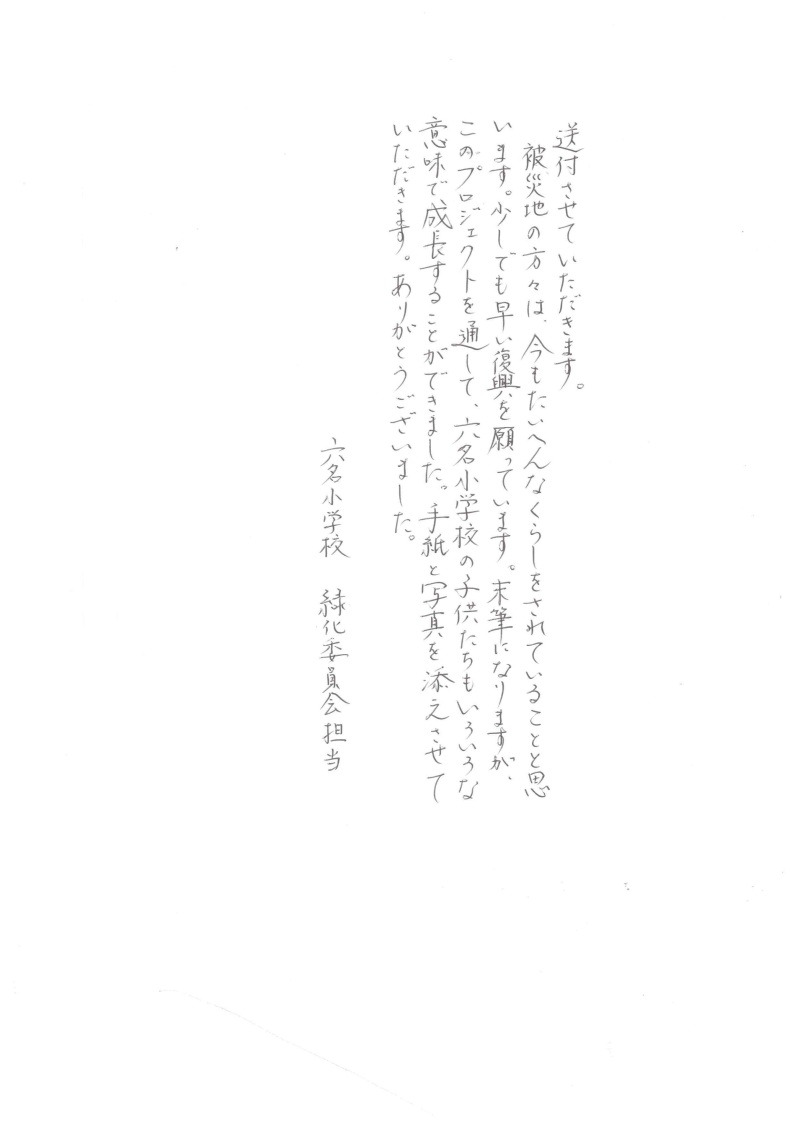 送付させていただきます。
被災地の方々は、今もたいへんなくらしをされていることと思
います。少しでも早い復興を願っています。末筆になりますが、
このプロジェクトを通して、六名小学校の子供たちもいろいろな
意味で、成長することができました。手紙と写真を添えさせて
いただきます。ありがとうございました。
六名小学校　緑化委員会担当